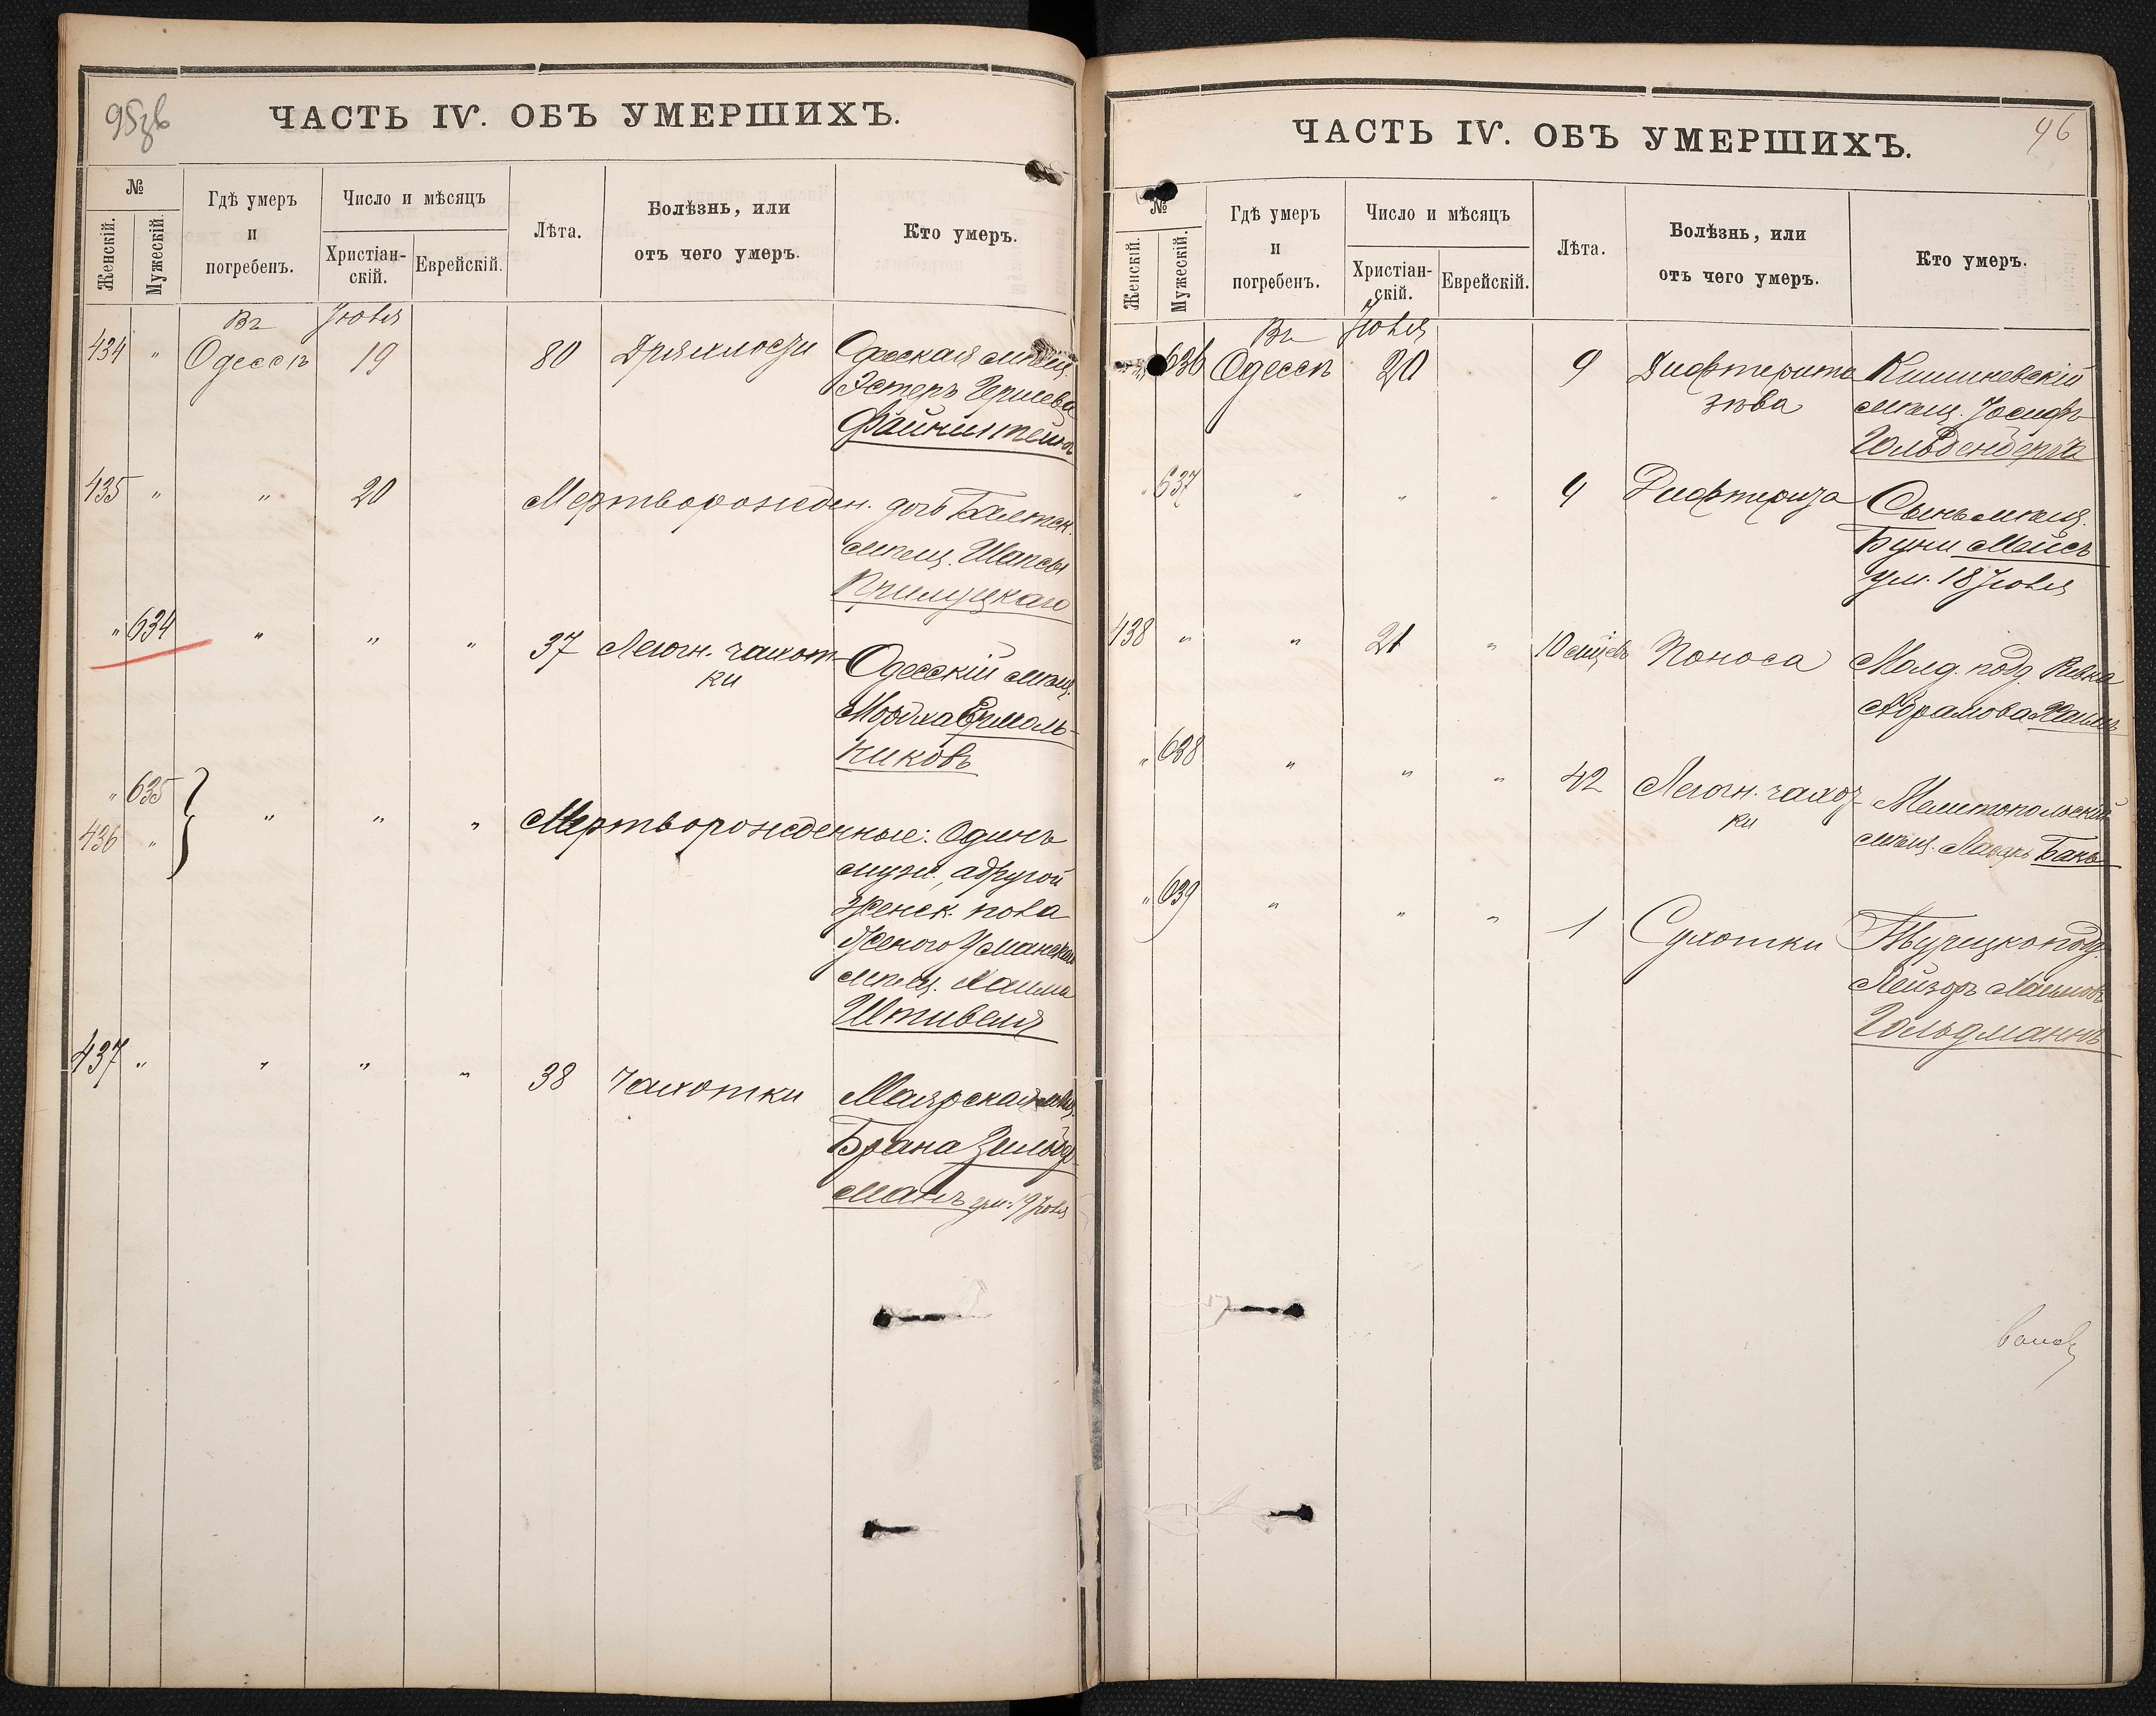 95зв
ЧАСТЬ IV. ОБЪ УМЕРШИХЪ.
№
Женскій.
Мужескій.
Гдѣ умеръ
и
погребенъ.
Число и мѣсяцъ
Христіан-
скій.
Еврейскій.
Лѣта.
Болѣзнь, или
отъ чего умеръ.
Кто умеръ.
Въ Іюля
434 " Одессѣ 19 80 Дряхлости Одесская мѣщ.
Эстеръ Гершева
Файнштейнъ
435 " " 20 Мертворожден. дочь Балтск.
мѣщ. Шапсы
Прилуцкаго
" 634 " " " 37 Легочн. чахот-
ки
Одесскій мѣщ.
Мордха Ермоль-
никовъ
" 635
436 "
" " " Мертворожденные: Одинъ
муж., а другой
женск. пола
Уманскаго
мѣщ. Хаима
Штивеля
437 " " " " 38 Чахотки Маярская мѣщ.
Брана Зильбер-
манъ ум. 19 Іюля
96
ЧАСТЬ IV. ОБЪ УМЕРШИХЪ.
№
Женскій.
Мужескій.
Гдѣ умеръ
и
погребенъ.
Число и мѣсяцъ
Христіан-
скій.
Еврейскій.
Лѣта.
Болѣзнь, или
отъ чего умеръ.
Кто умеръ.
Въ Іюля
636 Одессѣ 20 9 Дифтерита
зѣва
Кишиневскій
мѣщ. Іосифъ
Гольденбергъ
" 637 " " " 4 Дифтерита Сынъ мѣщ.
Буни Мейсъ
ум. 18 Іюля
438 " " 21 " 10 мѣсяцевъ Поноса Молд. подд. Ривка
Абрамова
" 638 " " " 42 Легочн. чахот-
ки
Мелитопольскій
мѣщ. Лазарь Бакъ
" 639 " " " 1 Сухотки Турецкоподд.
Лейзоръ Хаимовъ
Гольдманнъ